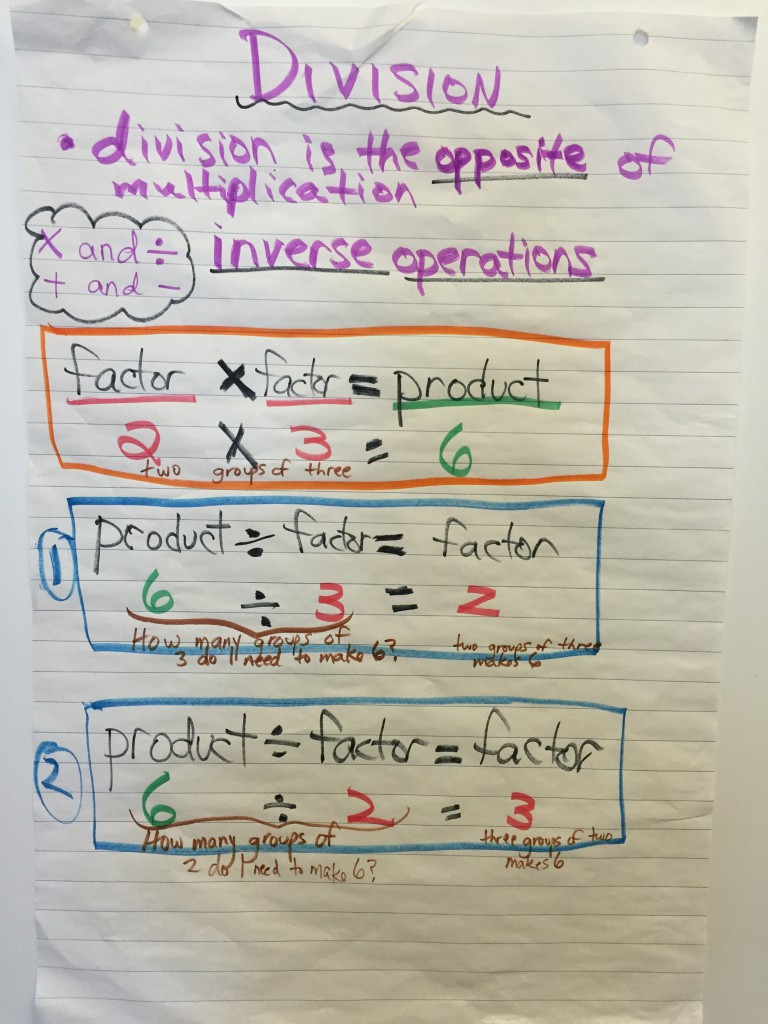 DIVISION
• division is the opposite of
multiplication
x and ÷
+ and -
inverse operations
factor x factor = product
2 x 3 = 6
two groups of three
product ÷ factor = factor
1
6 ÷ 3 = 2
How many groups of
3 do I need to make 6?
two groups of three
makes 6
product ÷ factor = factor
2
6 ÷ 2 = 3
How many groups of
2 do I need to make 6?
three groups of two
makes 6